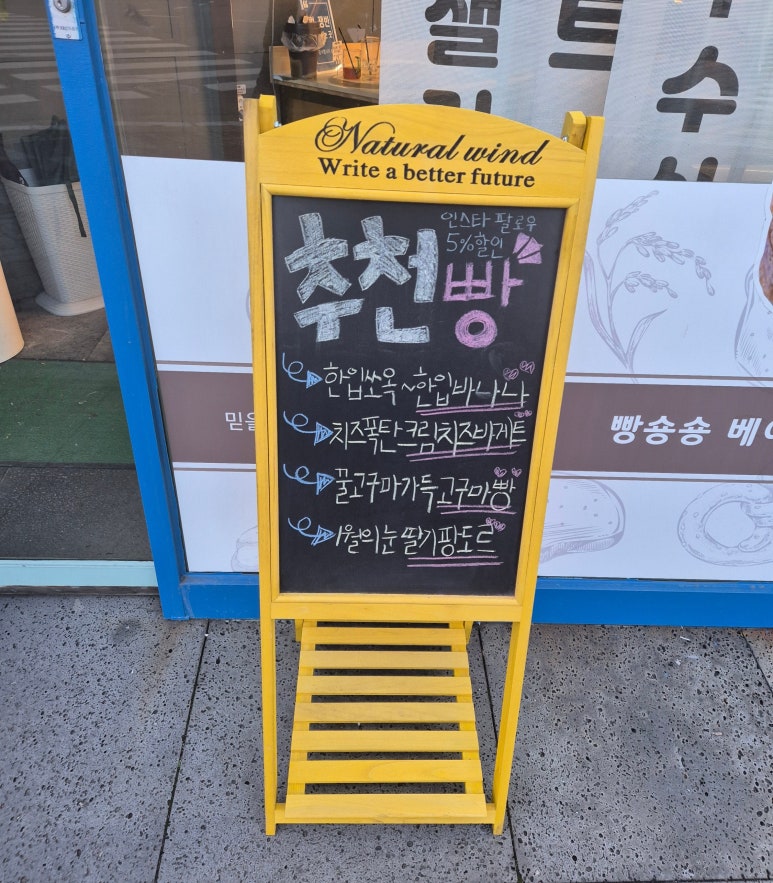 Natural wind
Write a better future
인스타 팔로우
5% 할인
추천빵
한입쏘옥~한입바나나
치즈폭탄크림치즈바게트
꿀고구마가득고구마빵
1월의눈딸기팡도르
믿을
빵숑숑 베이
젤
트
수